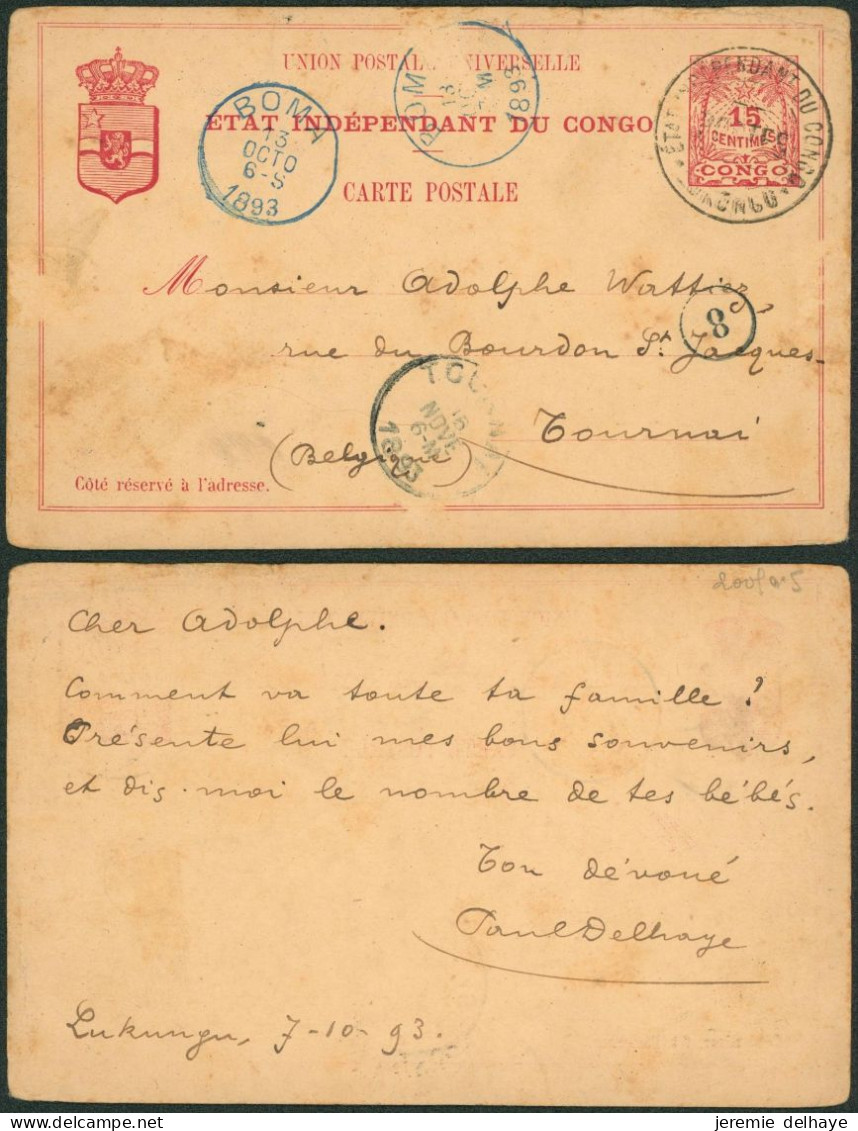 UNION POSTALE UNIVERSELLE
ETAT INDÉPENDANT DU CONGO
CARTE POSTALE
BOMA
13
OCTO
6-S
1893
BOMA
13
1893
ÉTAT INDÉPENDANT DU CONGO
LUKUNGU
15
CENTIMES
CONGO
Monsieur Adolphe Wattiez,
8
rue du Bourdon St Jacques-
Tournai
(Belgique)
TOURNAI
16
NOVE
6-M
1893
Côté réservé à l'adresse.
Cher Adolphe.
Comment va toute ta famille?
Présente lui mes bons souvenirs,
et dis-moi le nombre de tes bébés.
Ton dévoué
Paul Delhaye
Lukungu, 7-10-93.
jeremie delhaye